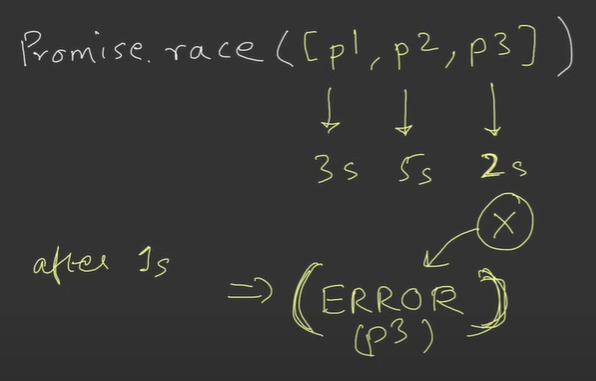 Promise.race([p1, p2, p3])
3s 5s 2s
X
after 1s
=> (ERROR)
(p3)